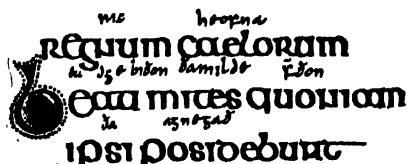 heofna
regnum caelorum
biðon ða milde
Beati mites quoniam
ða agnegað
ipsi posidebunt